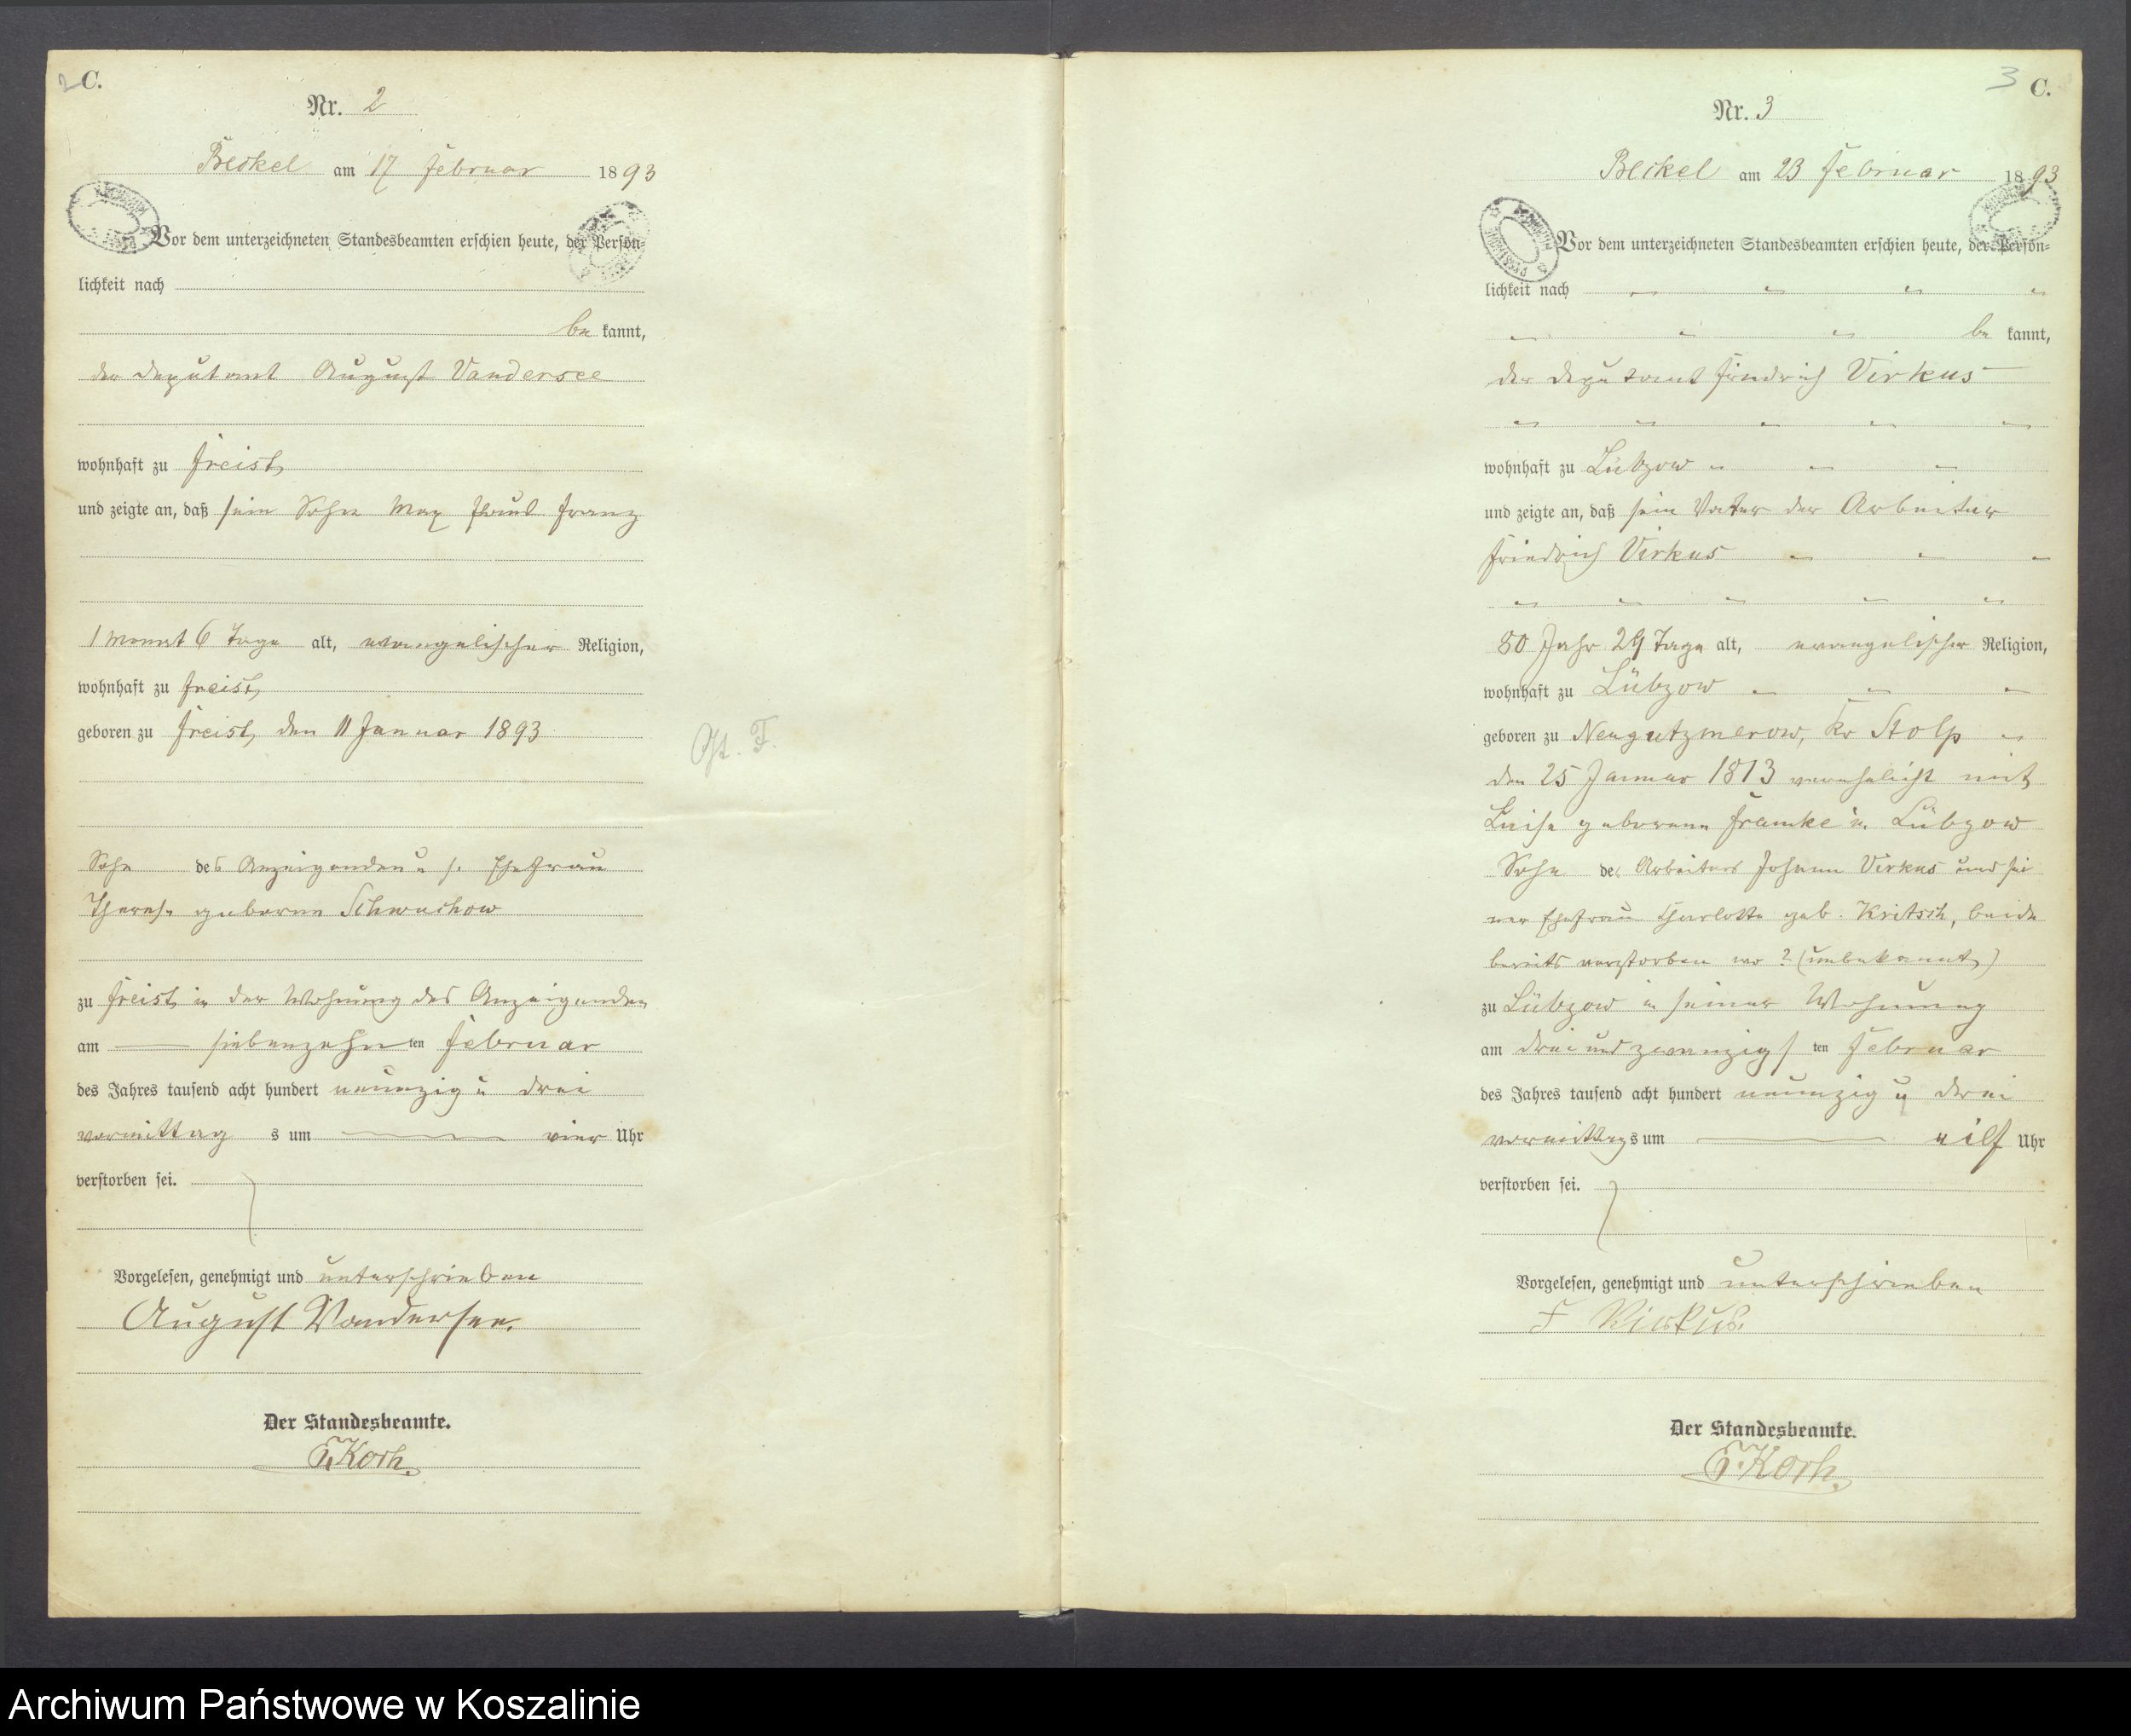 2 C.
Nr. 2
Beckel am 17 Februar 1893
Vor dem unterzeichneten Standesbeamten erschien heute, der Persön-
lichkeit nach
be kannt,
der Deputant August Vandersee
wohnhaft zu Freist,
und zeigte an, daß sein Sohn Max Paul Franz
1 Monat 6 Tage alt, evangelischer Religion,
wohnhaft zu Freist,
geboren zu Freist, den 11 Januar 1893
Sohn des Anzeigenden u s. Ehefrau
Therese geborne Schwuchow
zu Freist in der Wohnung des Anzeigenden
am siebenzehn ten Februar
des Jahres tausend acht hundert neunzig u drei
vormittag s um vier Uhr
verstorben sei.
Vorgelesen, genehmigt und unterschrieben
August Vandersee.
Der Standesbeamte.
Koch.
3 C.
Nr. 3
Beckel am 23 Februar 1893
Vor dem unterzeichneten Standesbeamten erschien heute, der Persön-
lichkeit nach
be kannt,
der Deputant Friedrich Virkus
wohnhaft zu Lübzow
und zeigte an, daß sein Vater der Arbeiter
Friedrich Virkus
80 Jahr 29 Tage alt, evangelischer Religion,
wohnhaft zu Lübzow
geboren zu Neugutzmerow, Kr Stolp
den 25 Januar 1813 verehelicht mit
Luise geborene Framke in Lübzow
Sohn des Arbeiters Johann Virkus und sei
ner Ehefrau Charlotte geb. Kritsch, beide
bereits verstorben wo? (unbekannt)
zu Lübzow in seiner Wohnung
am drei und zwanzigs ten Februar
des Jahres tausend acht hundert neunzig u drei
vormittags um eilf Uhr
verstorben sei.
Vorgelesen, genehmigt und unterschrieben
F Virkus.
Der Standesbeamte.
Koch.
Archiwum Państwowe w Koszalinie